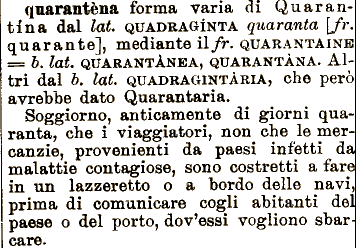 quarantèna forma varia di Quaran-
tína dal lat. QUADRAGÍNTA quaranta [fr.
quarante], mediante il fr. QUARANTAINE
= b. lat. QUARANTÀNEA, QUARANTÀNA. Al-
tri dal b. lat. QUADRAGINTÀRIA, che però
avrebbe dato Quarantaria.
Soggiorno, anticamente di giorni qua-
ranta, che i viaggiatori, non che le mer-
canzie, provenienti da paesi infetti da
malattie contagiose, sono costretti a fare
in un lazzeretto o a bordo delle navi,
prima di comunicare cogli abitanti del
paese o del porto, dov'essi vogliono sbar-
care.